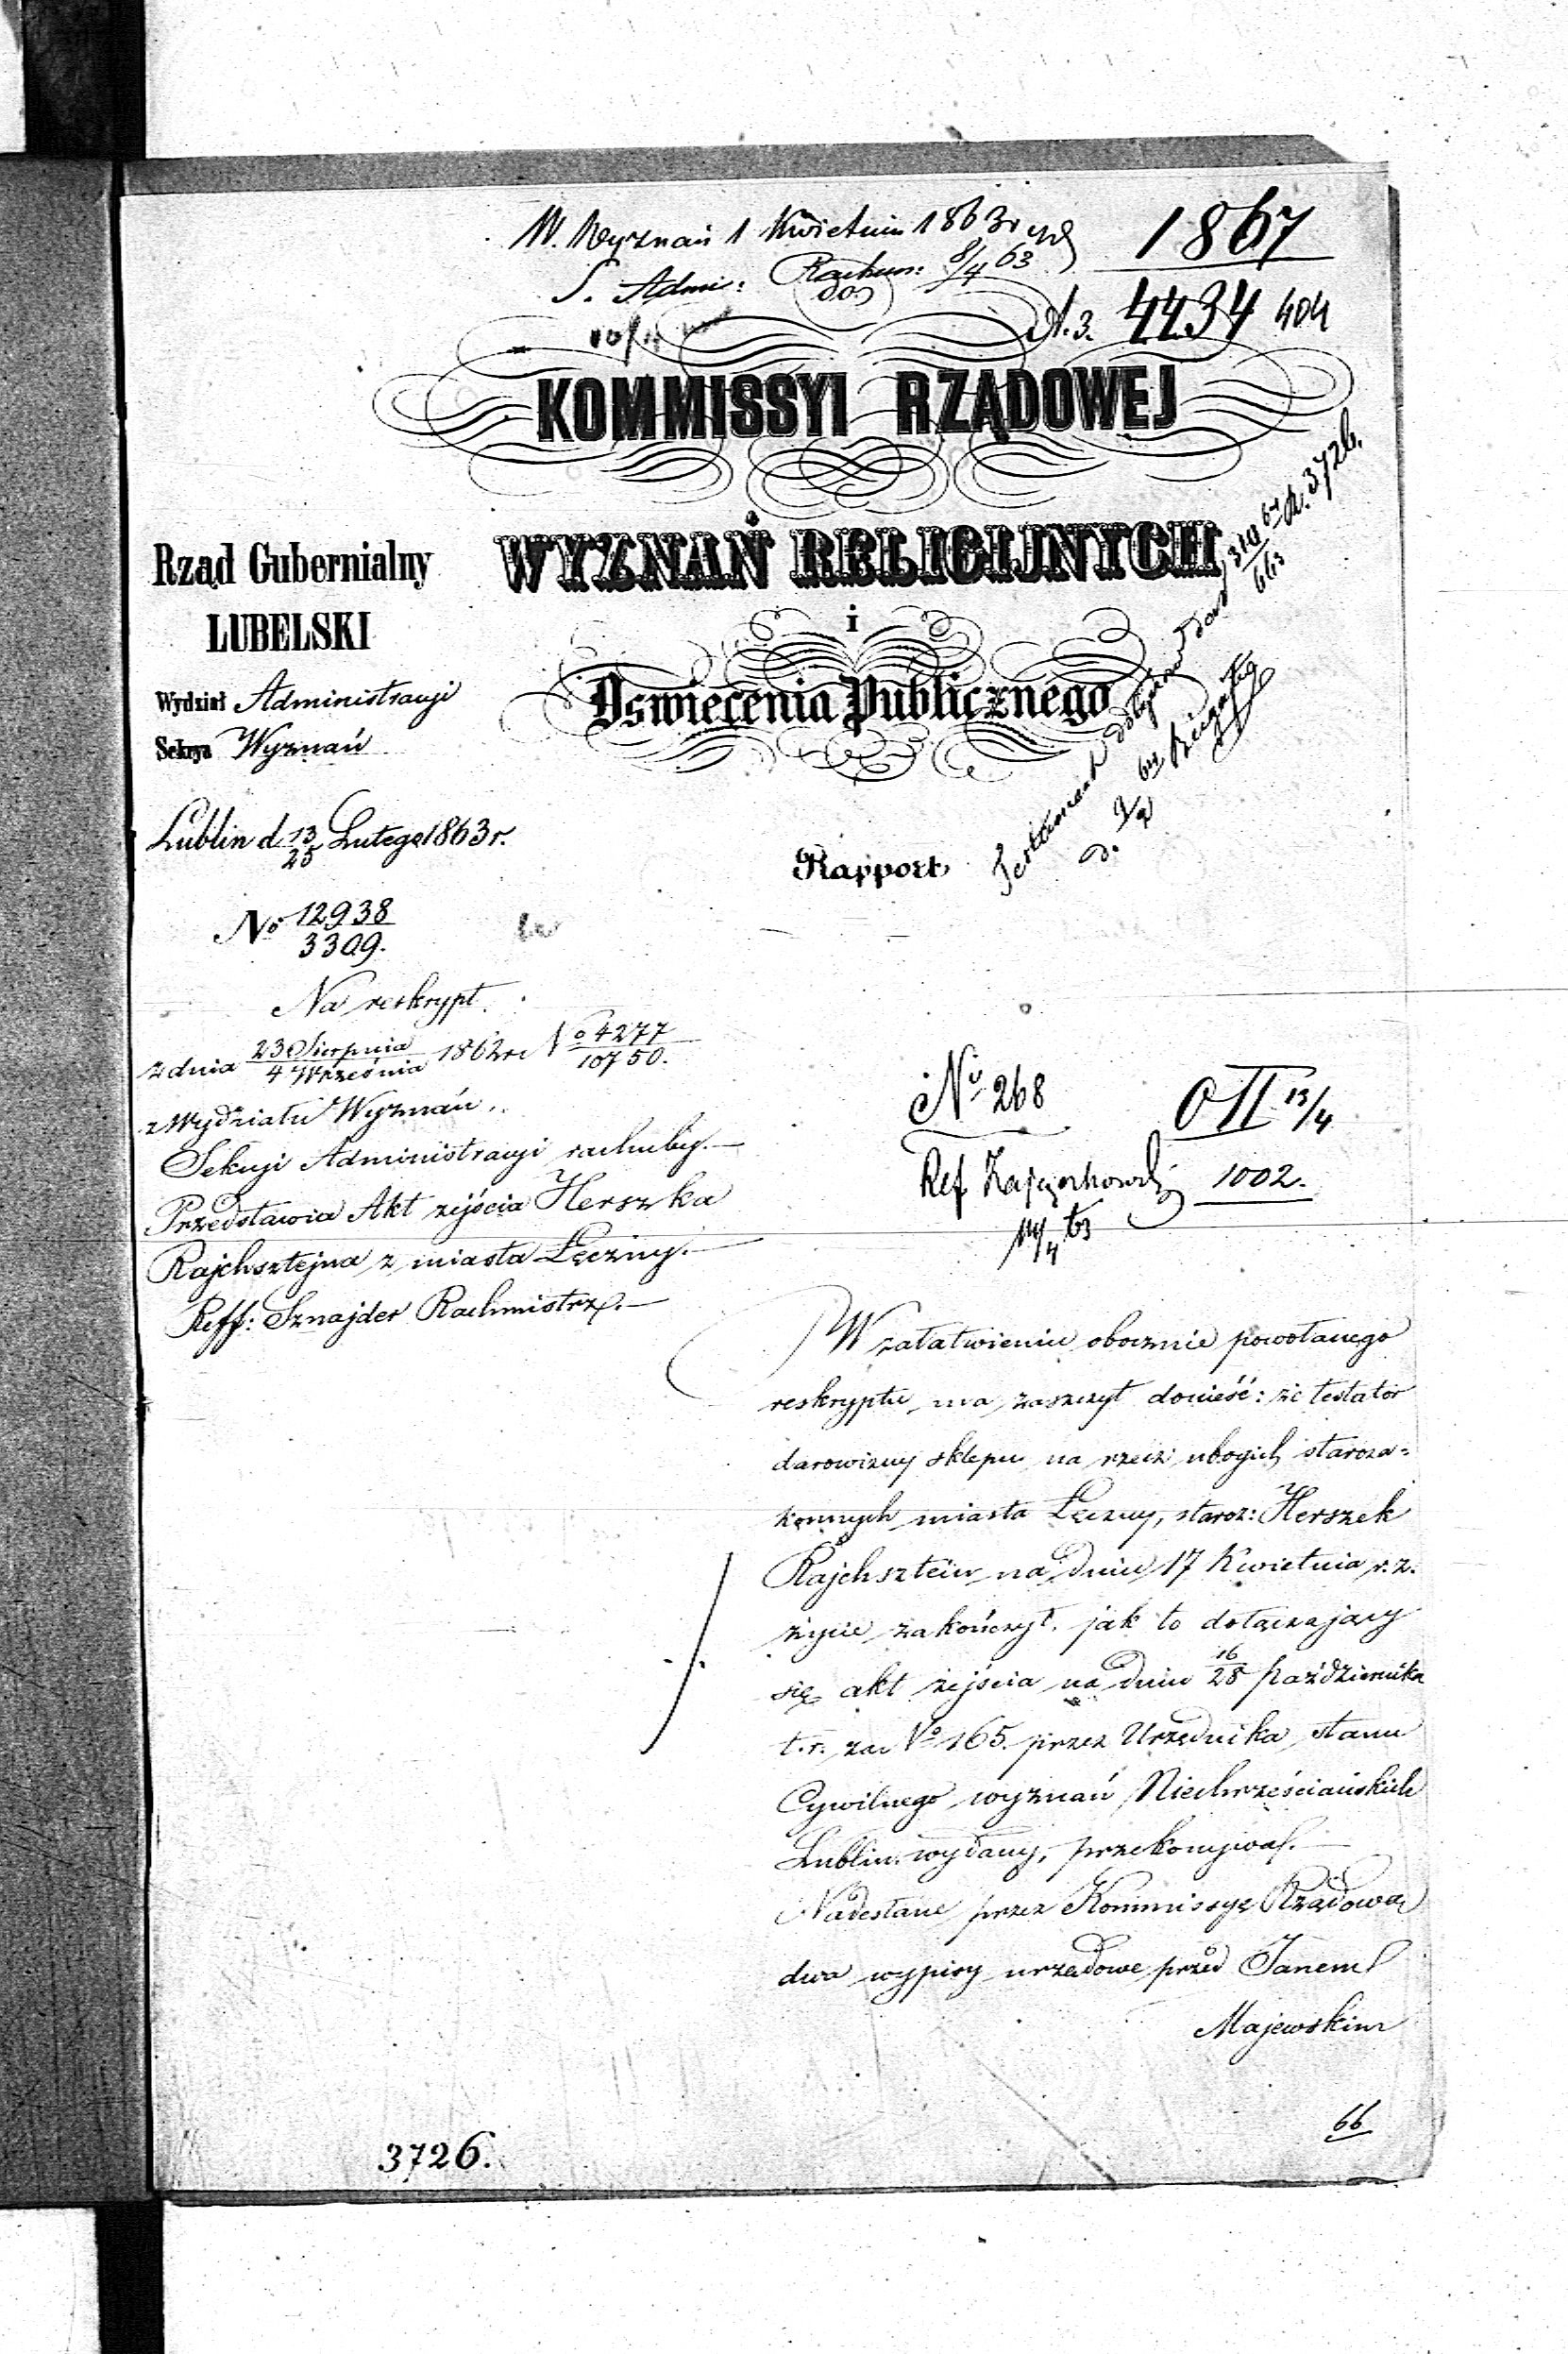 W. Wyznań 1 Kwietnia 1863 r
1867
S. Admi: Rachun: 8/4 63
A. 3. 4434 404
KOMMISSYI RZĄDOWEJ
WYZNAŃ RELIGIJNYCH
i
Oswiecenia Publicznego
Rapport
Rząd Gubernialny
LUBELSKI
Wydział Administracyi
Sekcya Wyznań
Lublin d. 13/25 Lutego 1863 r.
No 12938/3309.
Na reskrypt
z dnia 23 Sierpnia/4 Września 1862 r. No 4277/10750.
z Wydziału Wyznań
Sekcyi Administracyi rachuby.—
Przedstawia Akt zejścia Herszka
Rajchsztejna z miasta Łęczny.—
Reff: Sznajder Rachmistrz.—
No 268
O II 13/4
Ref. 1002.
14/4 63
W załatwieniu obocznie powołanego
reskryptu, ma zaszczyt donieść: że testator
darowizny sklepu na rzecz ubogich staroza=
konnych miasta Łęczny, staroz: Herszek
Rajchsztein na dniu 17 Kwietnia r. z.
życie zakończył, jak to dołączający
się akt zejścia na dniu 16/28 Października
t. r. za No 165. przez Urzędnika stanu
Cywilnego wyznań Niechrześciańskich
Lublin. wydany, przekonywa.—
Nadesłane przez Kommissyę Rządową
dwa wypisy urzędowe przed Janem
Majewskim
66
3726.